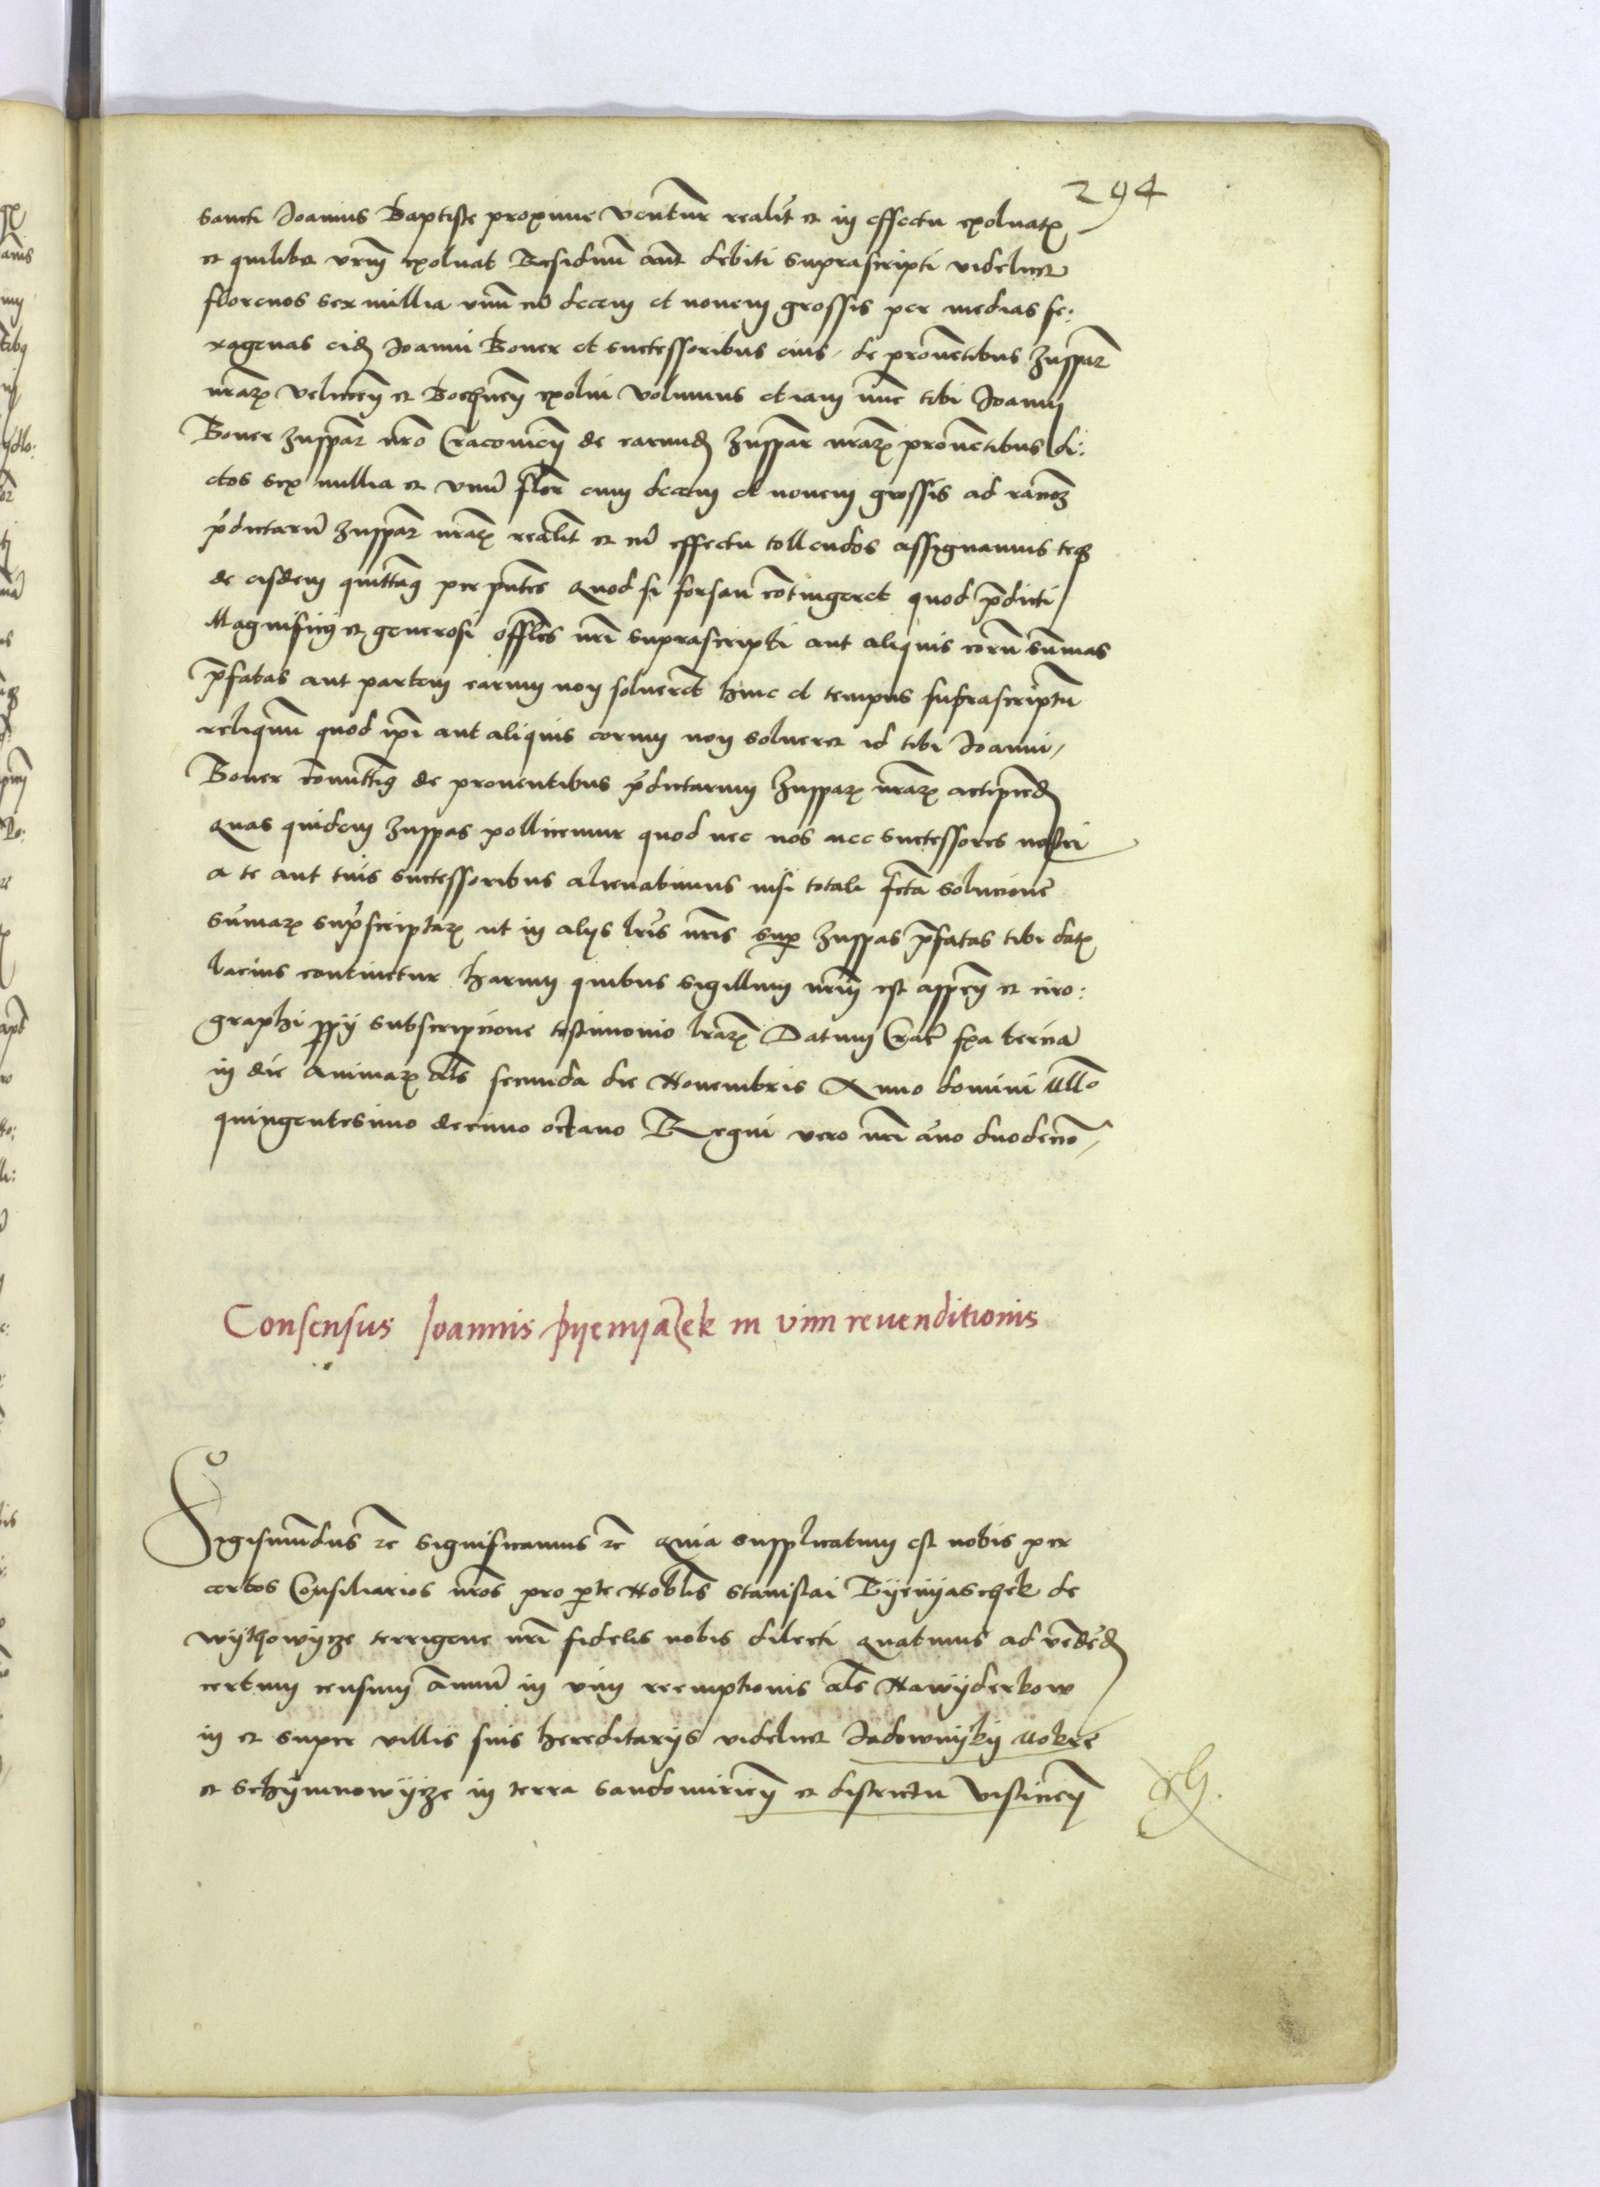 294
sancti Joannis Baptiste proxime ventur realit et in effectu exoluatr
et quilibet vrm exoluat Residuu aut debiti suprascripti videlicet
florenos sex millia vnu cu decem et novem grossis per medias se:
xagenas eid Joanni Boner et successoribus eius de prouetibus zuppar
nrar velicen et Bochnen exolui volumus et iam nuc tibi Joanni
Boner zuppar nro Cracouien de earund zuppar nrar prouetibus di:
ctos sex millia et vnu flor cum decem et novem grossis ad racoe
pdictaru zuppar nrar realit et cu effectu tollendos assignamus teq
de eisdem quittam per pntes quod si forsan cotingeret quod pdicti
Magnificus et generosi offles nri suprascripti aut aliquis eoru sumas
pfatas aut partem earum non solueret hinc et tempus suprascriptu
reliquu quod ipi aut aliquis eorum non solueret id tibi Joanni
Boner comittim de prouentibus pdictarum zuppar nrar accipied
quas quidem zuppas pollicemur quod nec nos nec successores nostri
a te aut tuis successoribus alienabimus nisi totali fcta solucione
sumar suprscriptar ut in alys lris nris sup zuppas pfatas tibi dat
lacius continetur harum quibus sigillum nrum est appen et ciro:
graphi ppij subscripcione testimonio lrar Datum Crac fxa tercia
in die animar als secunda die Novembris Anno domini Mllo
quingentesimo decimo octauo Regni vero nri ano duodecio
Consensus Joannis pyenyazek in vim reuenditionis
Sigismudus rc significamus rc quia supplicatum est nobis per
certos Consiliarios nros pro pte Noblis Stanislai Pyenyaschek de
wythowycze terrigene nri fidelis nobis dilecti quatenus ad vended
certum censum annuu in vim reemptionis als Nawyderkow
in et super villis suis hereditarys videlicet Jadownyky Mokre
et Schymnowycze in terra Sandomirien et districtu Vislicien